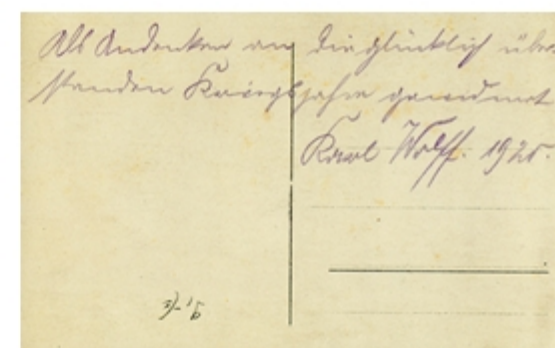 Als Andenken an die glücklich über
standen Kriegsjahre gewidmet
Karl Wolff. 1925.